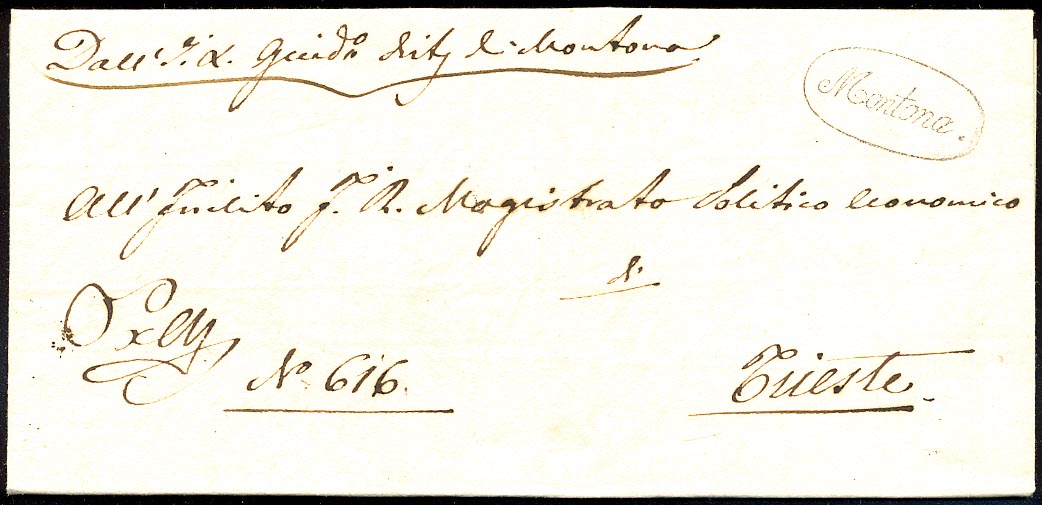 Dall' I. R. Giudo Distl di Montona
Montona.
All' Inclito I. R. Magistrato Politico Economico
di
Trieste.
Ex Off
No 616.